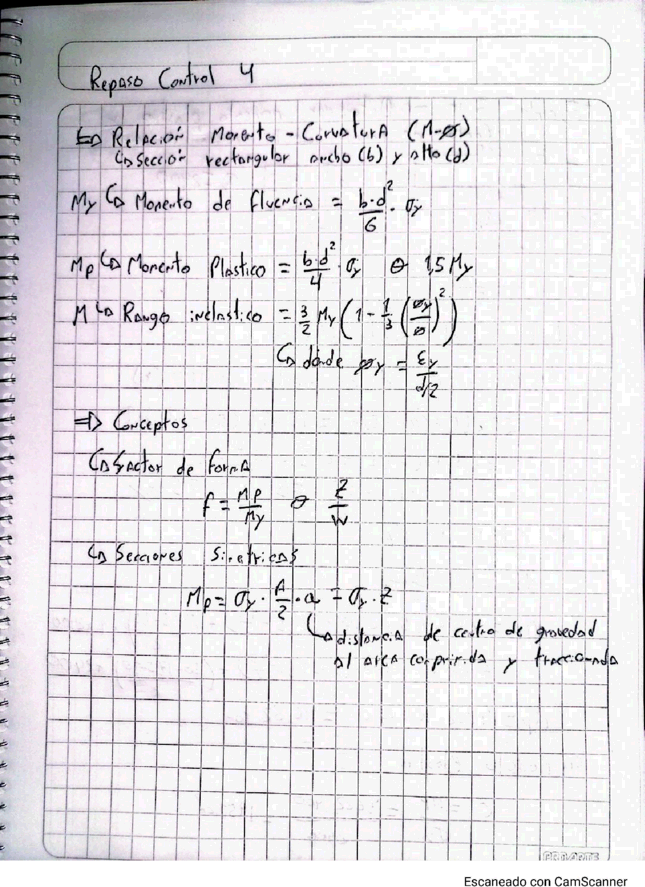 Repaso Control 4
↳ Relación Momento - Curvatura (M-ø)
↳ sección rectangular ancho (b) y alto (d)
My ↳ Momento de fluencia = b·d²/6 · σy
Mp ↳ Momento Plastico = b·d²/4 · σy o 1,5 My
M ↳ Rango inelastico = 3/2 My (1 - 1/3 (øy/ø)²)
↳ donde øy = εy / d/2
⇒ Conceptos
↳ factor de forma
f = MP/My o Z/W
↳ Secciones simetricas
Mp = σy · A/2 · a = σy · Z
↳ distancia de centro de gravedad
al area comprimida y traccionada
PROARTE
Escaneado con CamScanner